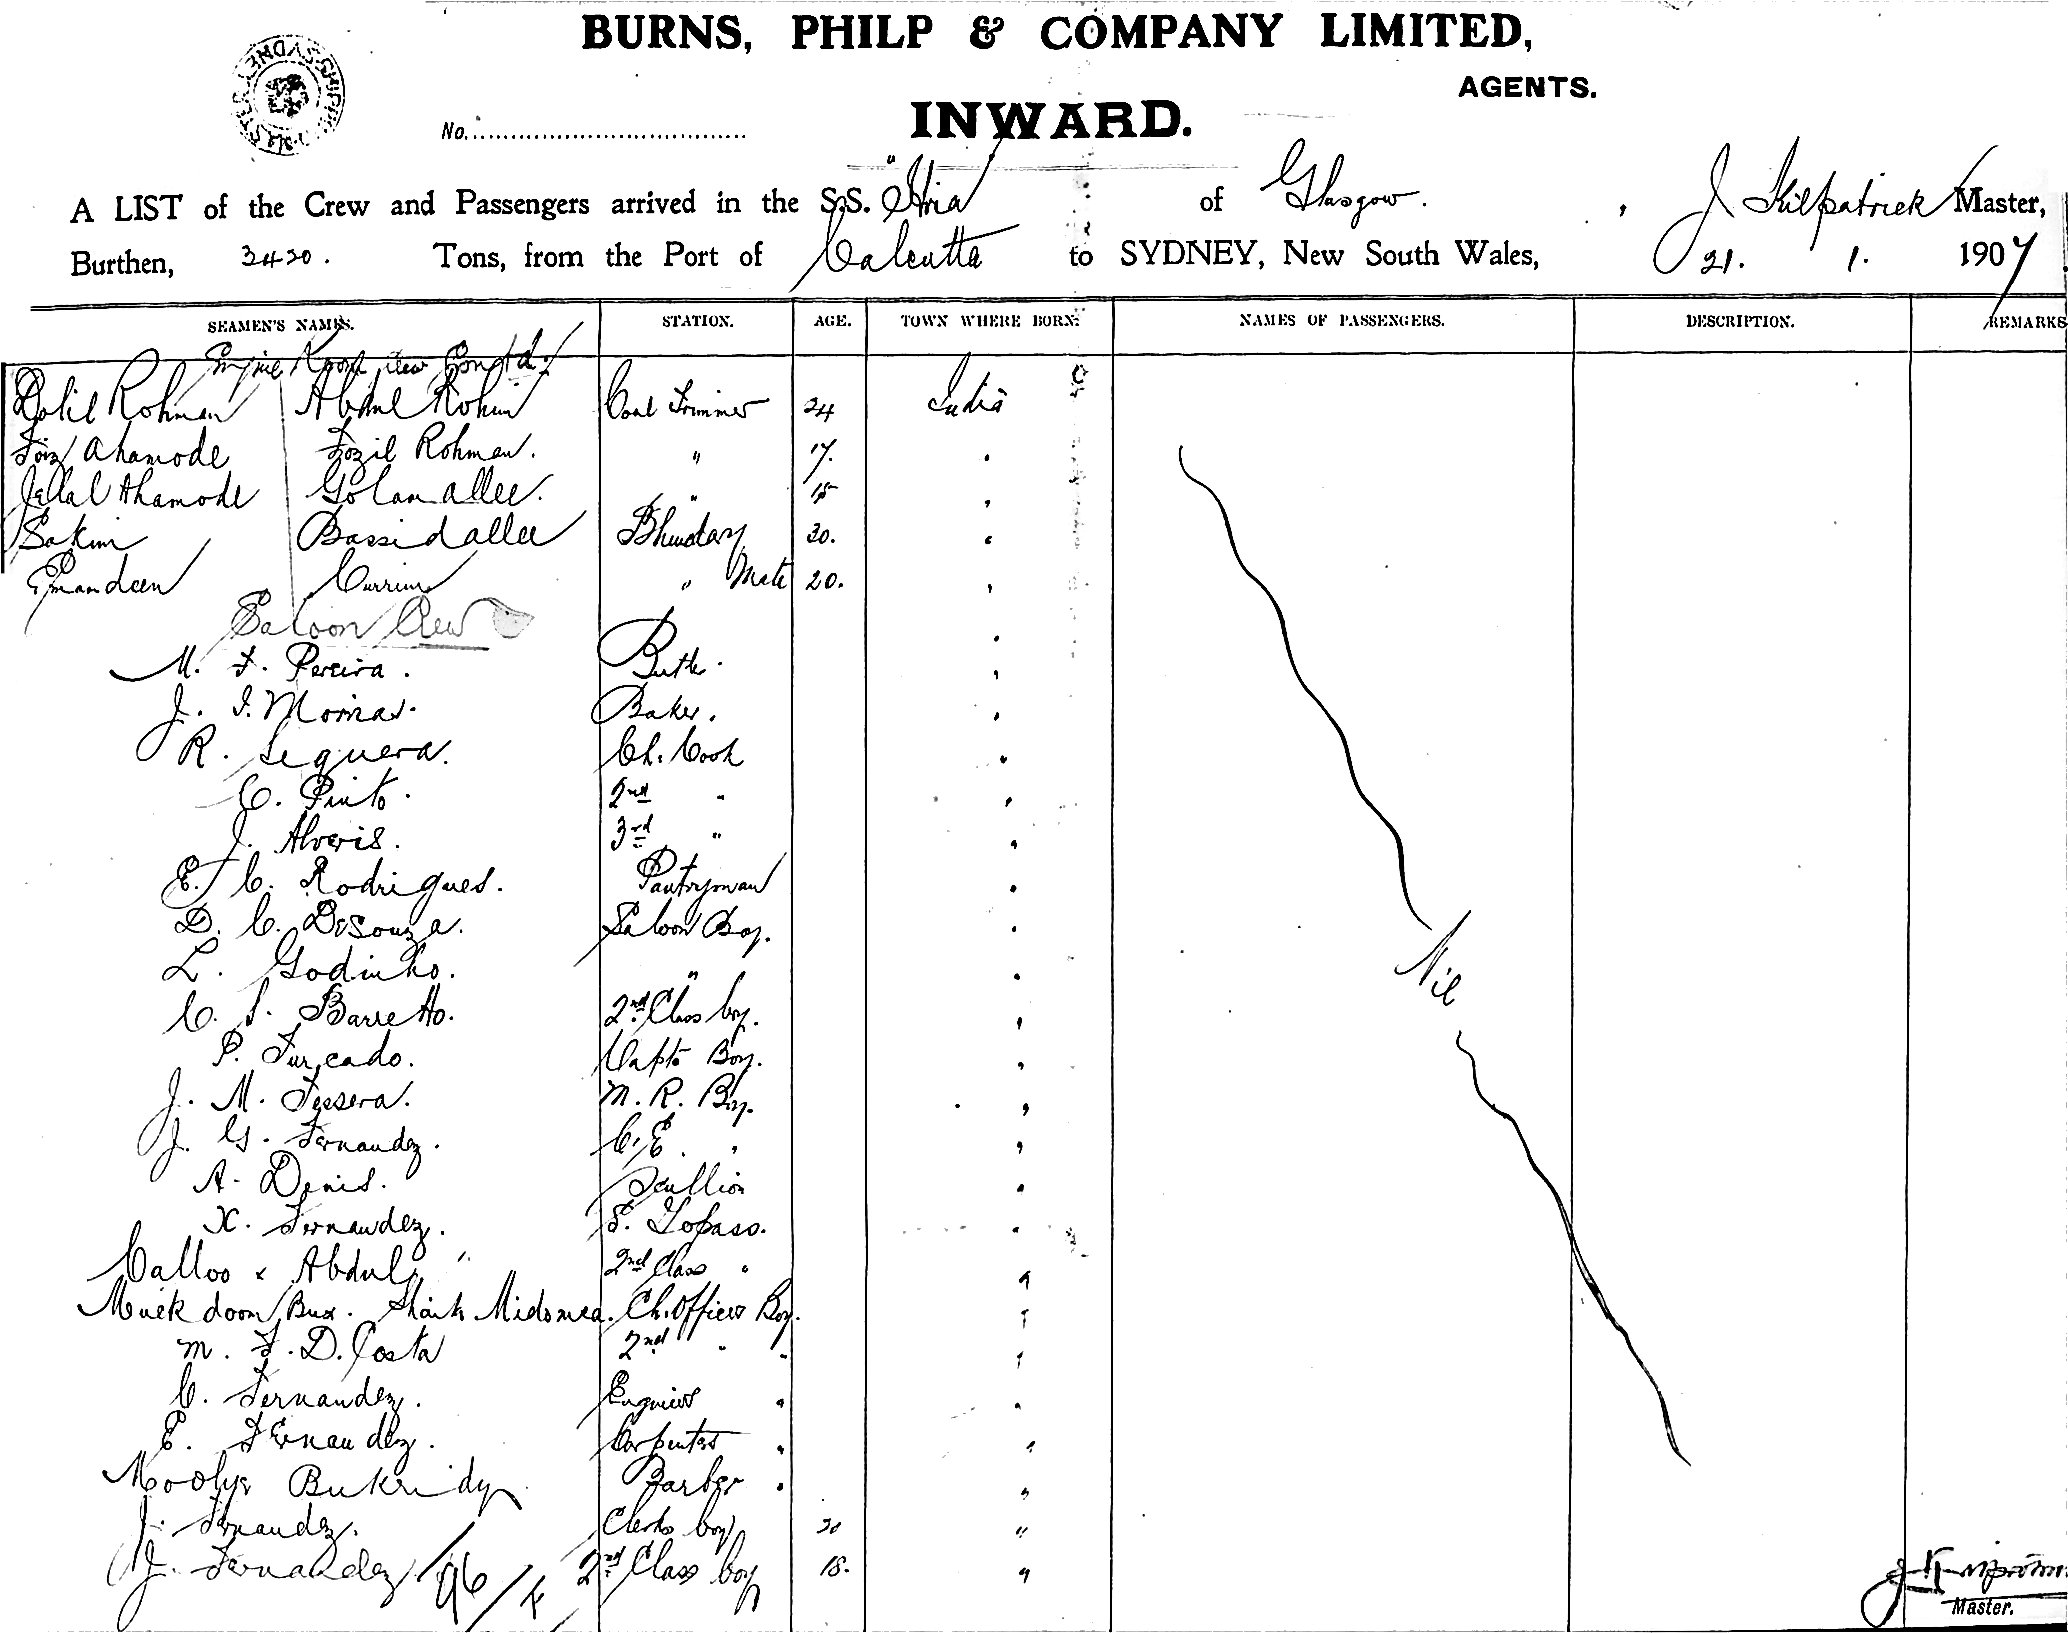 BURNS, PHILP & COMPANY LIMITED,
AGENTS.
No.
INWARD.
A LIST of the Crew and Passengers arrived in the S.S. "Itria of Glasgow. , J Kilpatrick Master,
Burthen, 3420. Tons, from the Port of Calcutta to SYDNEY, New South Wales, 21. 1. 1907
SEAMEN'S NAMES. STATION. AGE. TOWN WHERE BORN. NAMES OF PASSENGERS. DESCRIPTION. REMARKS
Engine Room Crew Contd.
Rohman Abdul Rohim Coal Trimmer 24 India
Foiz Ahamode Fozil Rohman. " 17. "
Jallal Ahamode Golam allee. " 15 "
Sakim Bassid allee Bhundary 30. "
Emandeen Currim " Mate 20. "
Saloon Crew "
M. F. Pereira. Butler. "
J. I. Baker. "
R. Sequera. Ch. Cook "
C. Pinto. 2nd " "
J. Alveris. 3rd " "
E. C. Rodrigues. Pantryman "
D. C. DeSouza. Saloon Boy. "
L. Godinho. " "
Nil
C. S. Barretto. 2nd Class boy. "
P. Furcado. Capts Boy. "
J. M. Tessera. M. R. Boy. "
J. G. Fernandez. C. E. " "
A. Denis. Scullion "
X. Fernandez. S. Topass. "
Calloo x Abdul " 2nd Class " "
Muckdoom Bux. Shaik Ch. Officers Boy. "
M. F. D. Costa 2nd " " "
C. Fernandez. Engineers " "
E. Fernandez. Carpenters " "
Barber " "
J. Fernandez. Clerks boy 30 "
J. Fernandez 2nd Class boy 18. "
96/4
Master.